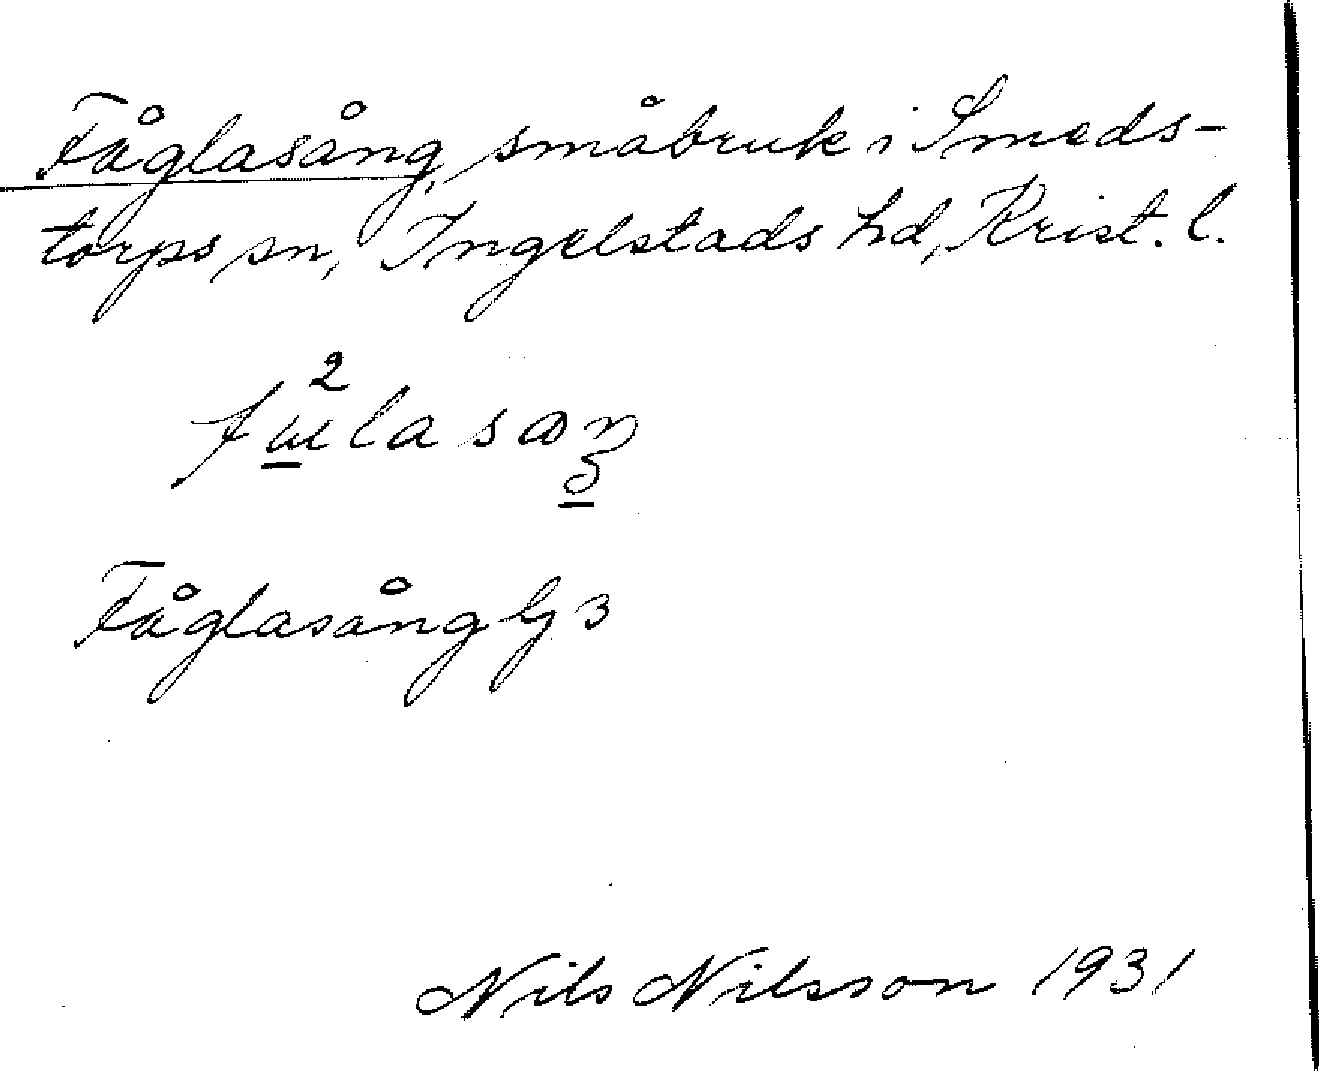 Fåglasång, småbruk i Smeds-
torps sn, Ingelstads hd, Krist. l.
Fåglasång G 3
Nils Nilsson 1931